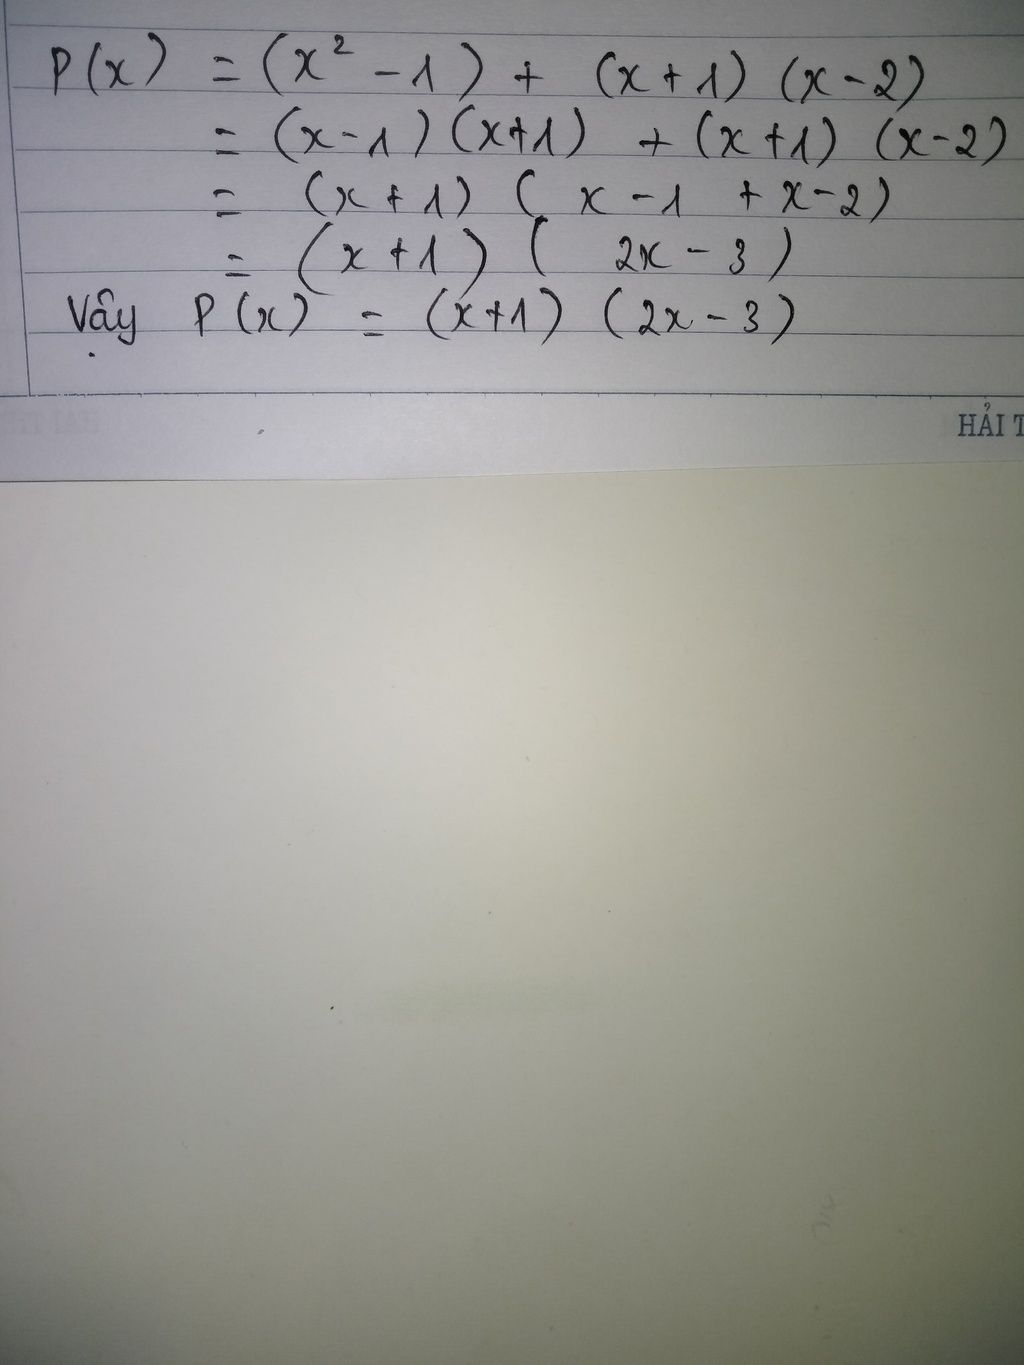 P(x) = (x² - 1) + (x + 1) (x - 2)
= (x - 1) (x + 1) + (x + 1) (x - 2)
= (x + 1) ( x - 1 + x - 2)
= (x + 1) ( 2x - 3 )
Vậy P(x) = (x + 1) (2x - 3)
HẢI T